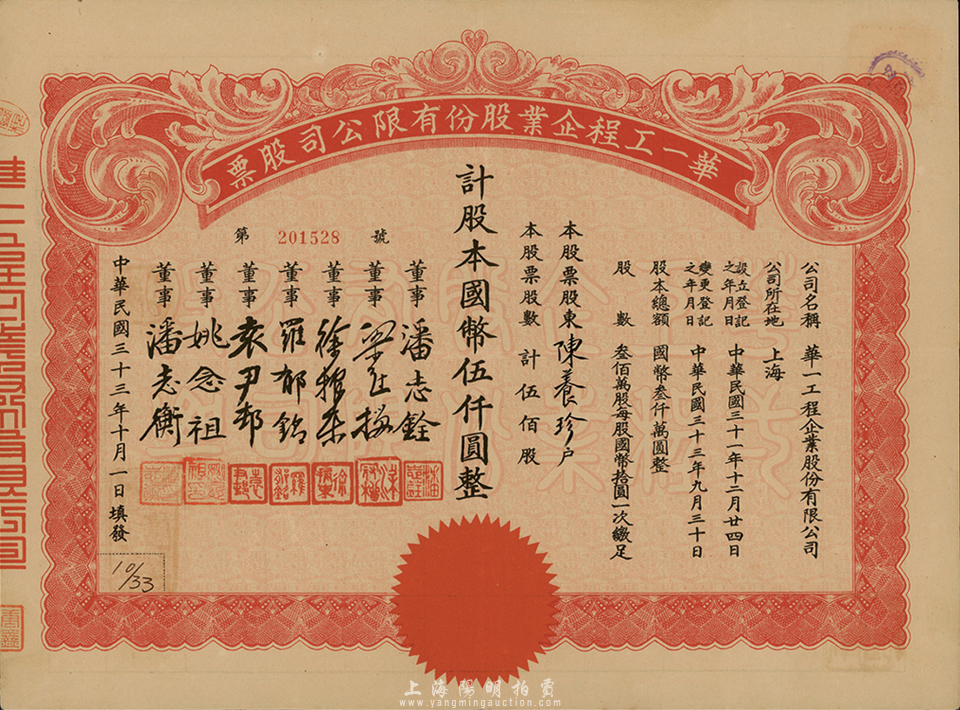 華一工程企業股份有限公司股票
公司名稱 華一工程企業股份有限公司
公司所在地 上海
設立登記之年月日 中華民國三十一年十二月廿四日
變更登記之年月日 中華民國三十三年九月三十日
股本總額 國幣叁仟萬圓整
股數 叁佰萬股每股國幣拾圓一次繳足
本股票股東 陳養珍戶
本股票股數 計伍佰股
計股本國幣伍仟圓整
第 201528 號
董事 潘志銓
董事
董事
董事 羅郁銘
董事 袁尹邨
董事 姚念祖
董事 潘志衡
中華民國三十三年十月一日填發
10/33
上海陽明拍賣
www.yangmingauction.com